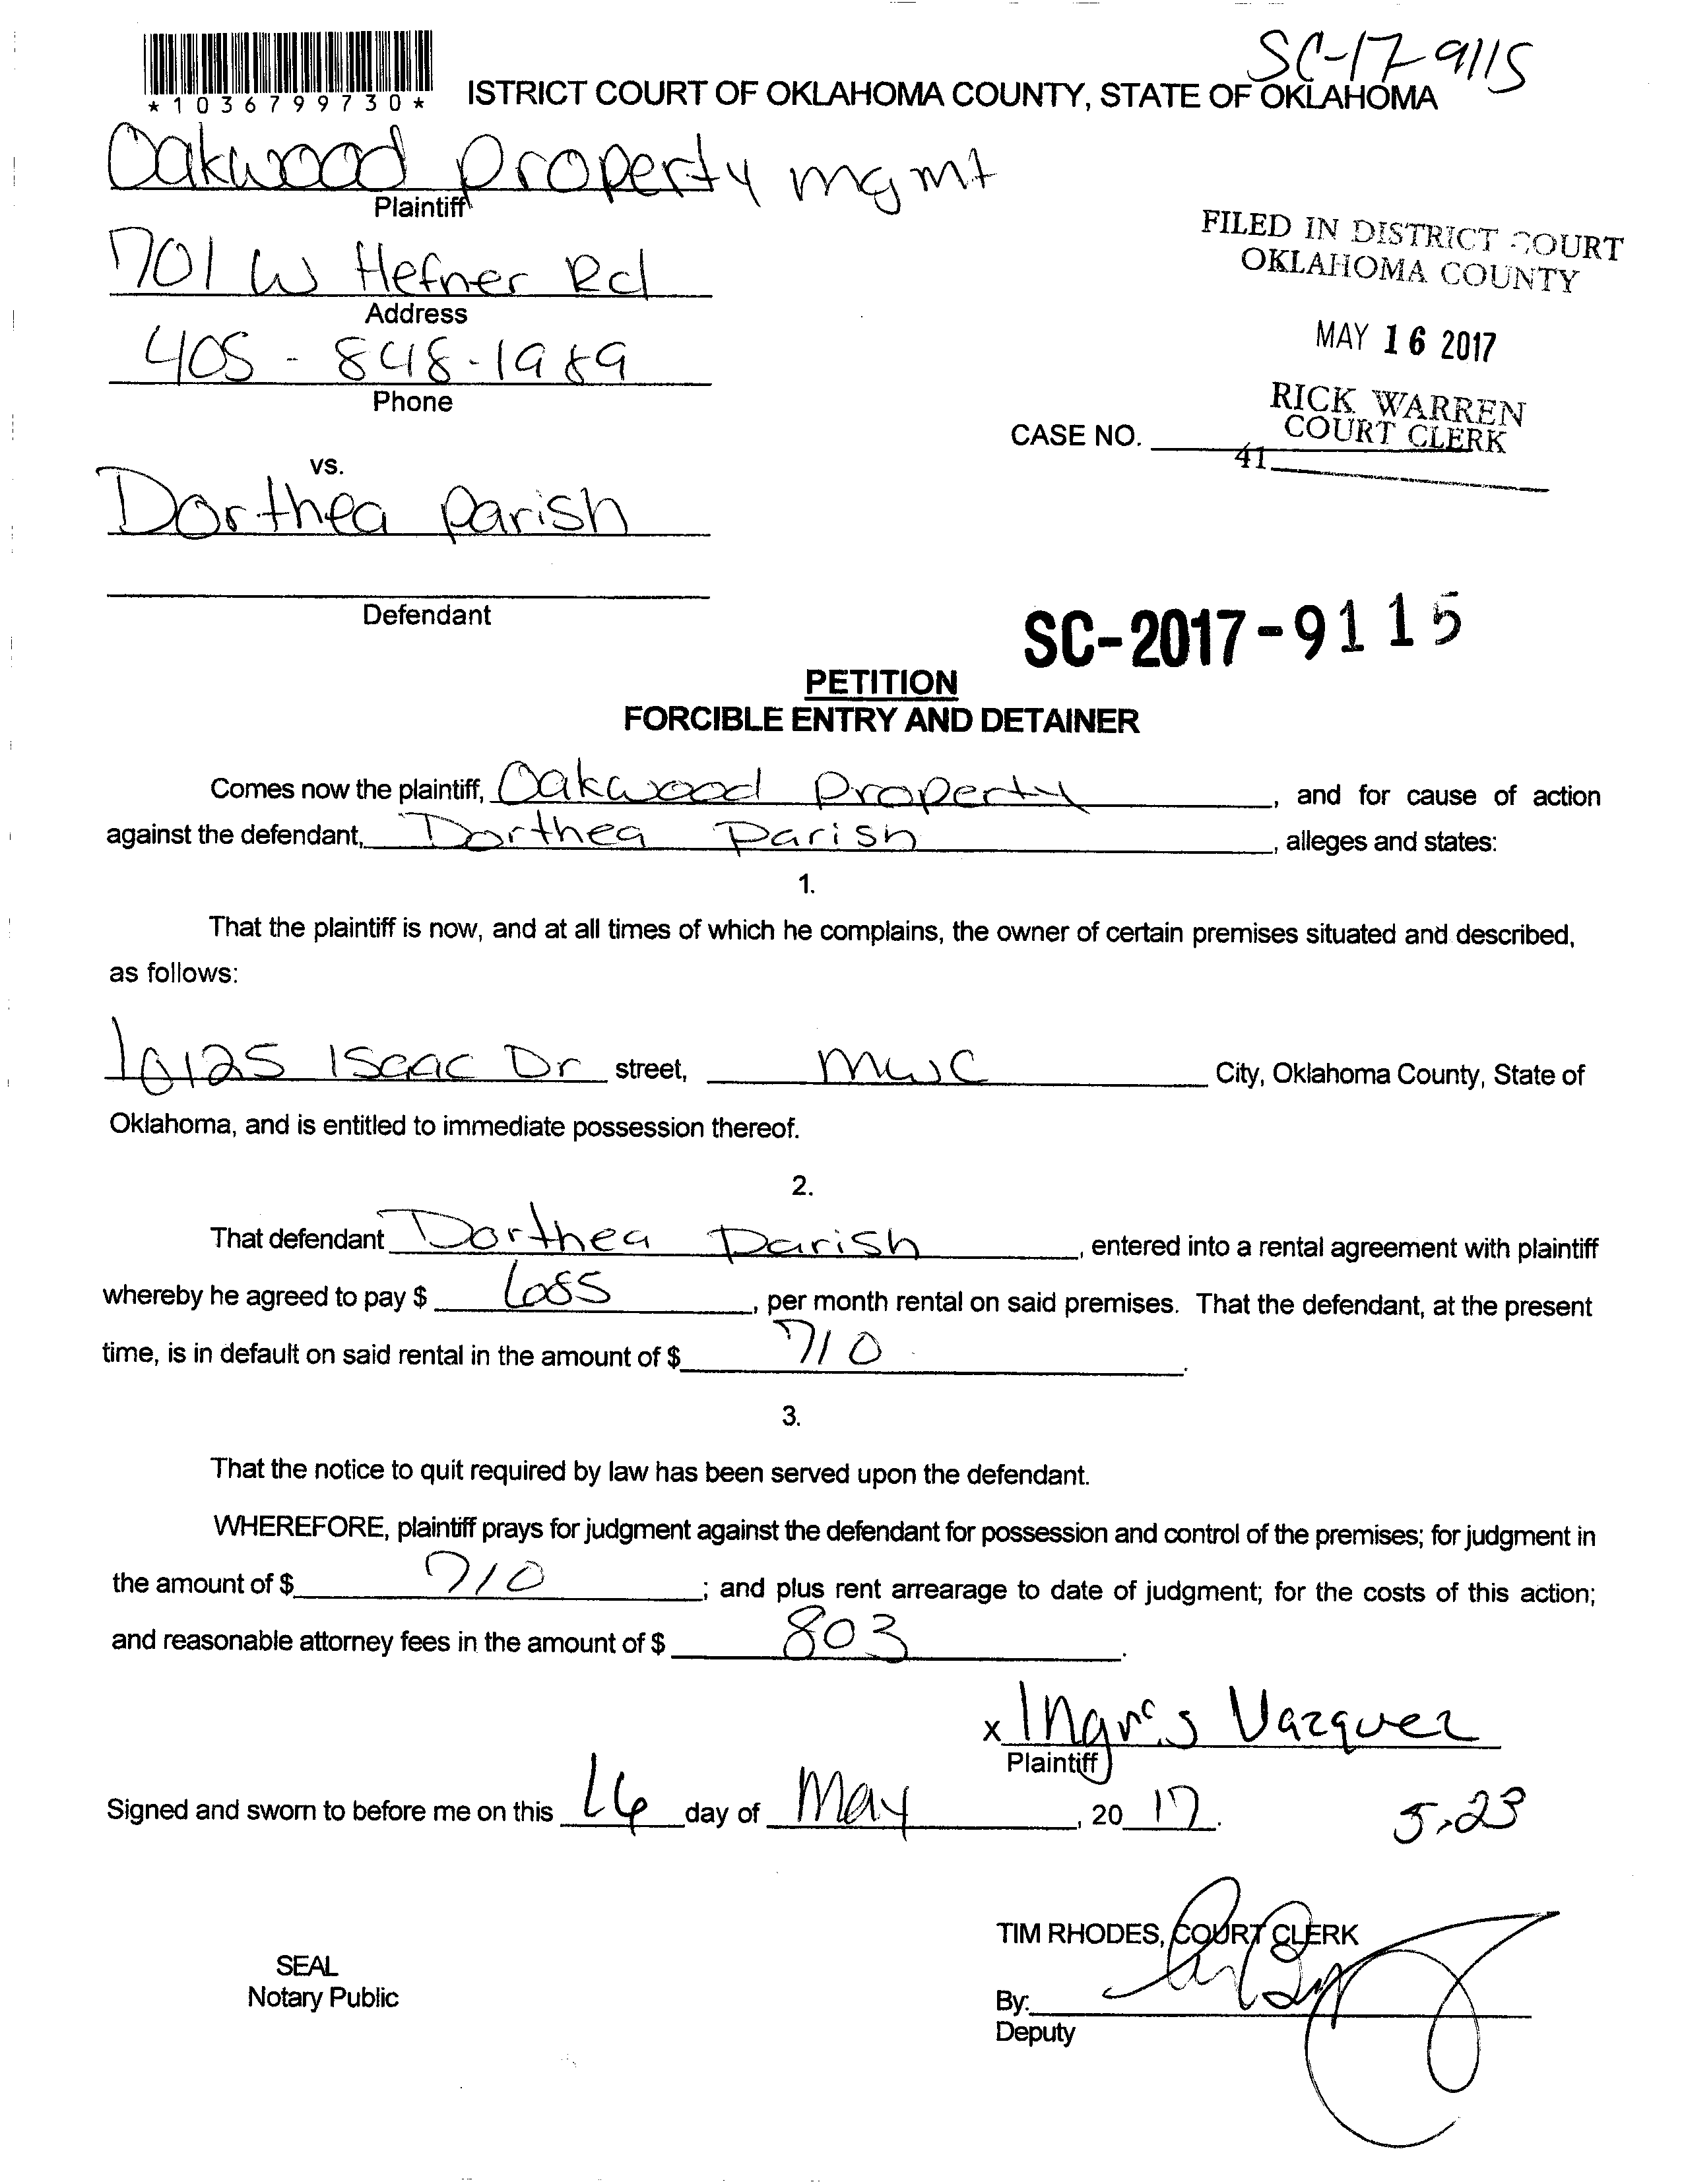 SC-17-9115
*1036799730*
ISTRICT COURT OF OKLAHOMA COUNTY, STATE OF OKLAHOMA
Oakwood Property mgmt
Plaintiff
701 W Hefner Rd
Address
405-848-1989
Phone
FILED IN DISTRICT COURT
OKLAHOMA COUNTY
MAY 16 2017
RICK WARREN
COURT CLERK
CASE NO.
41
vs.
Dorthea Parish
Defendant
SC-2017-9115
PETITION
FORCIBLE ENTRY AND DETAINER
Comes now the plaintiff, Oakwood Property, and for cause of action
against the defendant, Dorthea Parish, alleges and states:
1.
That the plaintiff is now, and at all times of which he complains, the owner of certain premises situated and described,
as follows:
Isaac Dr street, MWC City, Oklahoma County, State of
Oklahoma, and is entitled to immediate possession thereof.
2.
That defendant Dorthea Parish, entered into a rental agreement with plaintiff
whereby he agreed to pay $ 685, per month rental on said premises. That the defendant, at the present
time, is in default on said rental in the amount of $ 710.
3.
That the notice to quit required by law has been served upon the defendant.
WHEREFORE, plaintiff prays for judgment against the defendant for possession and control of the premises; for judgment in
the amount of $ 710; and plus rent arrearage to date of judgment; for the costs of this action;
and reasonable attorney fees in the amount of $ 803.
x Vazquez
Plaintiff
Signed and sworn to before me on this 16 day of May, 2017.
5-23
TIM RHODES, COURT CLERK
SEAL
Notary Public
By:
Deputy